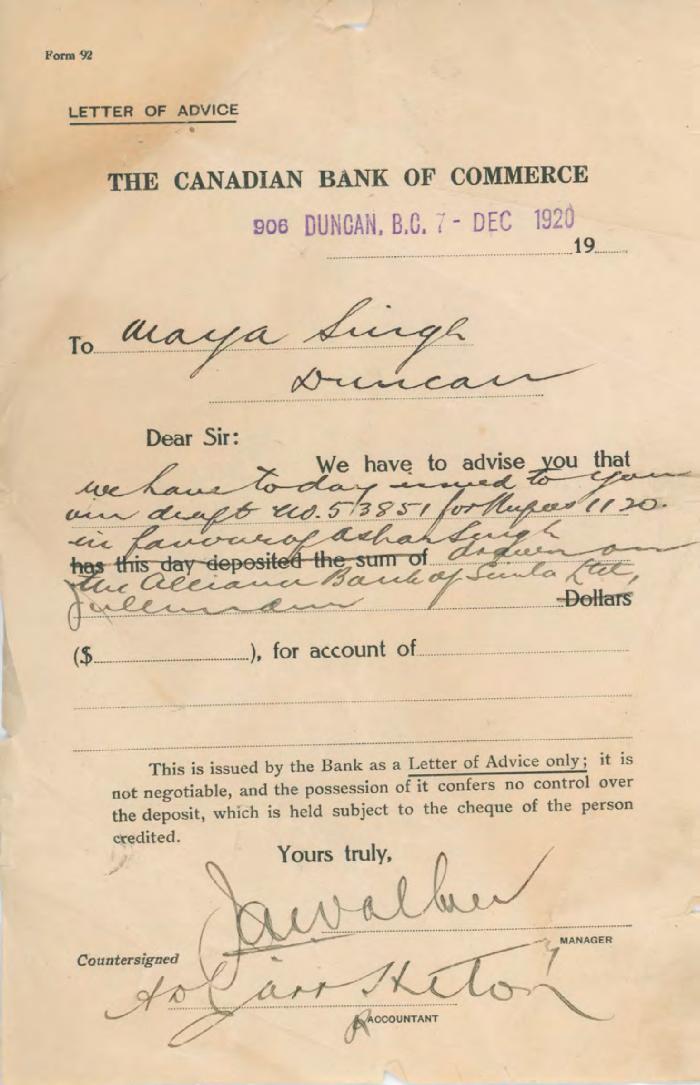 Form 92
LETTER OF ADVICE
THE CANADIAN BANK OF COMMERCE
906 DUNCAN, B.C. 7 - DEC 1920
19
To Maya Singh
Duncan
Dear Sir:
We have to advise you that
we have today issued to you
our draft No. 53851 for Rupees 1120.
in favour of Ashar Singh
has this day deposited the sum of drawn on
the Alliance Bank of Simla Ltd,
Jullundur Dollars
($ ), for account of
This is issued by the Bank as a Letter of Advice only; it is
not negotiable, and the possession of it confers no control over
the deposit, which is held subject to the cheque of the person
credited.
Yours truly,
MANAGER
Countersigned
ACCOUNTANT